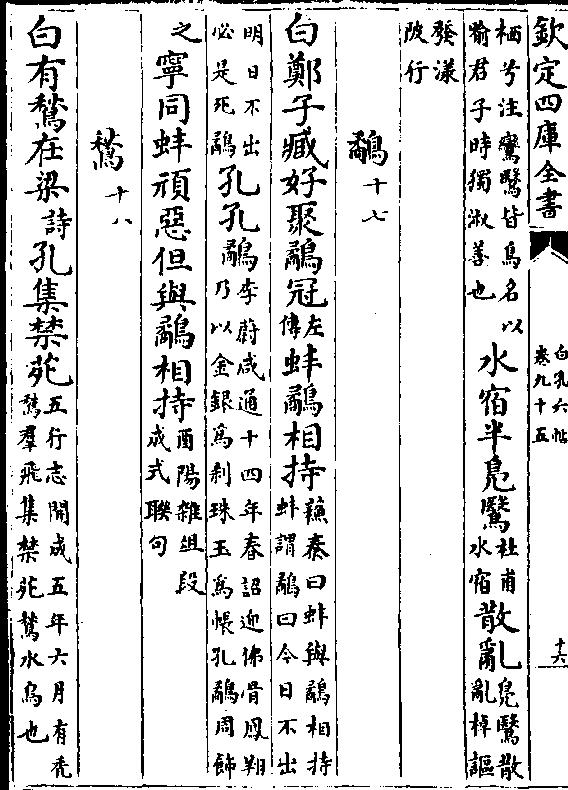 欽定四庫全書
白孔六帖
卷九十五
十六
栖兮注鸞鷖皆鳥名以喻君子時獨淑善也水宿半鳬鷖杜甫水宿散亂鳬鷖散亂棹謳
發漾陂行
鷸十七
白鄭子臧好聚鷸冠左傳蚌鷸相持蘇秦曰蚌與鷸相持蚌謂鷸曰今日不出
明日不出必是死鷸孔孔鷸李蔚咸通十四年春詔迎佛骨鳳翔乃以金銀爲刹珠玉爲帳孔鷸周飾
之寧同蚌頑惡但與鷸相持酉陽雜俎段成式聨句
鶖十八
白有鶖在梁詩孔集禁苑五行志開成五年六月有秃鶖羣飛集禁苑鶖水鳥也